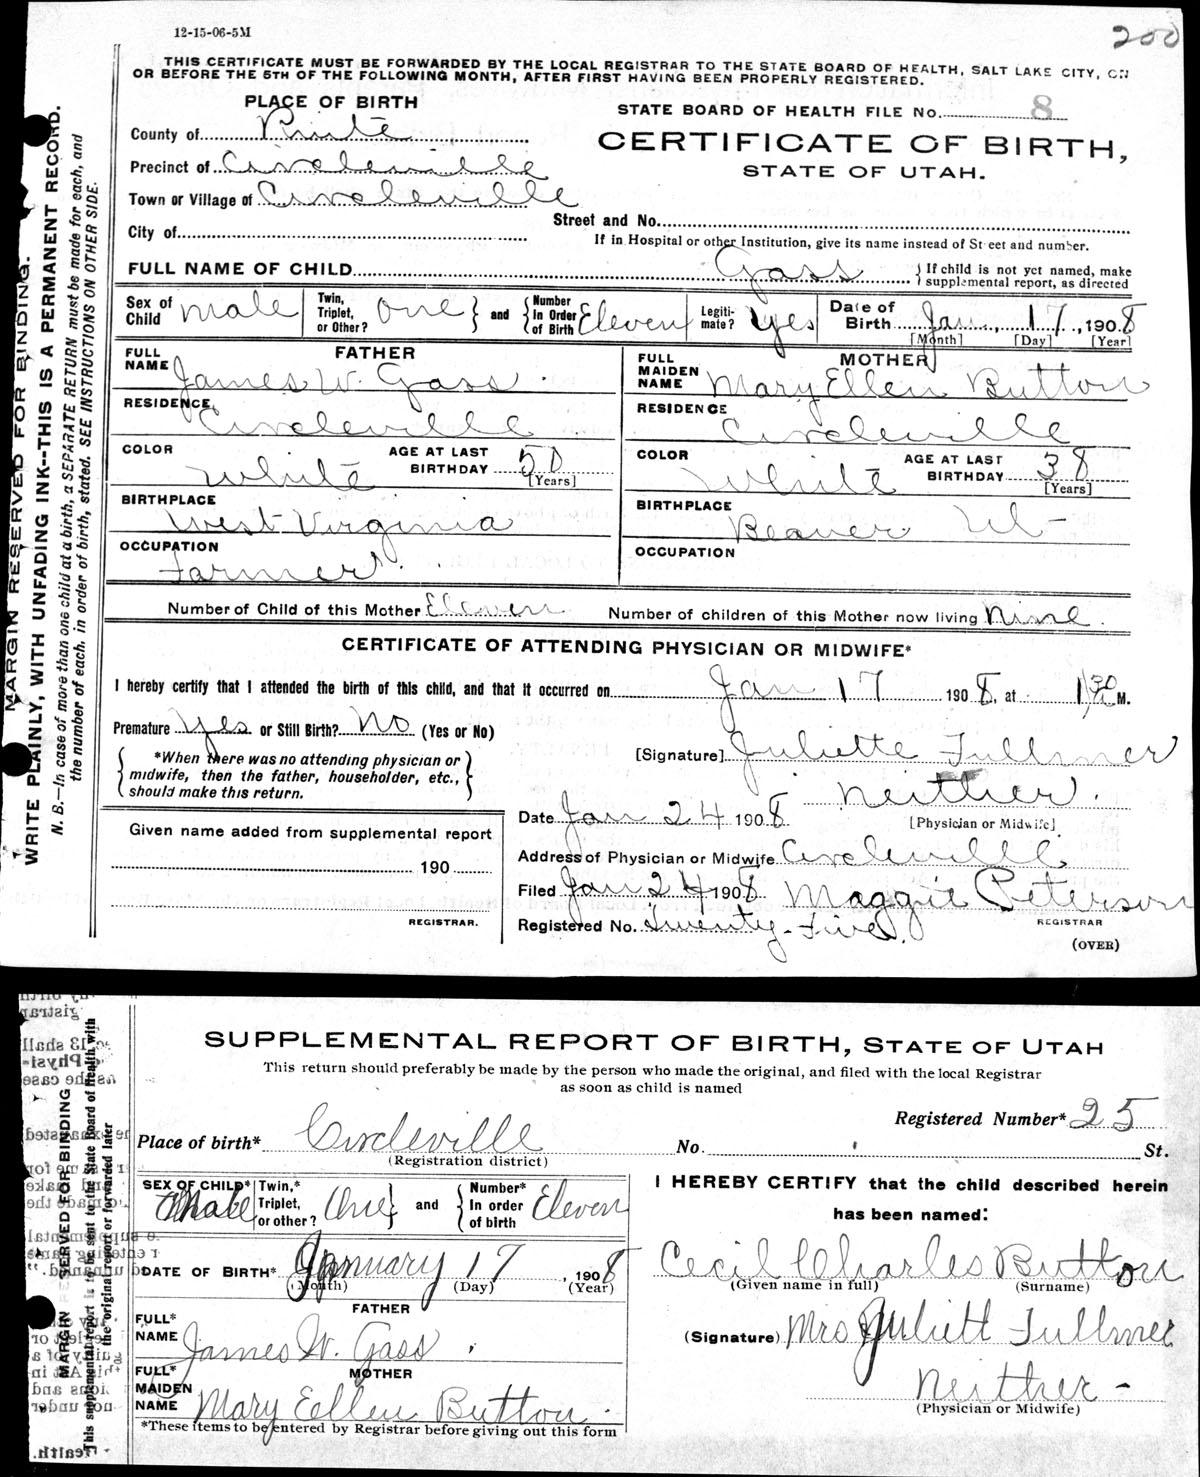 12-15-06-5M
200
THIS CERTIFICATE MUST BE FORWARDED BY THE LOCAL REGISTRAR TO THE STATE BOARD OF HEALTH, SALT LAKE CITY, ON
OR BEFORE THE 5TH OF THE FOLLOWING MONTH, AFTER FIRST HAVING BEEN PROPERLY REGISTERED.
PLACE OF BIRTH
STATE BOARD OF HEALTH FILE No. 8
County of Piute
CERTIFICATE OF BIRTH,
STATE OF UTAH.
Precinct of Circleville
Town or Village of Circleville
Street and No.
City of
If in Hospital or other Institution, give its name instead of Street and number.
FULL NAME OF CHILD Gass
If child is not yet named, make supplemental report, as directed
Sex of Child male Twin, Triplet, or Other? one and Number In Order of Birth Eleven Legiti- mate? yes Date of Birth Jan., 17, 1908
[Month] [Day] [Year]
FATHER
MOTHER
FULL NAME James W. Gass
FULL MAIDEN NAME Mary Ellen Button
RESIDENCE Circleville
RESIDENCE Circleville
COLOR White AGE AT LAST BIRTHDAY 50 [Years]
COLOR White AGE AT LAST BIRTHDAY 38 [Years]
BIRTHPLACE West Virginia
BIRTHPLACE Beaver Ut-
OCCUPATION Farmer.
OCCUPATION
Number of Child of this Mother Eleven Number of children of this Mother now living Nine.
CERTIFICATE OF ATTENDING PHYSICIAN OR MIDWIFE*
I hereby certify that I attended the birth of this child, and that it occurred on Jan 17 1908, at 1 30 M.
Premature yes or Still Birth? No (Yes or No)
[Signature] Juliette Fullmer
*When there was no attending physician or
midwife, then the father, householder, etc.,
should make this return.
Neither.
[Physician or Midwife]
Date Jan 24 1908
Given name added from supplemental report
190
REGISTRAR.
Address of Physician or Midwife Circleville
Filed Jan 24 1908 Maggie Peterson
REGISTRAR
Registered No. Twenty-Five.
(OVER)
MARGIN RESERVED FOR BINDING.
WRITE PLAINLY, WITH UNFADING INK--THIS IS A PERMANENT RECORD.
N. B.—In case of more than one child at a birth, a SEPARATE RETURN must be made for each, and
the number of each, in order of birth, stated. SEE INSTRUCTIONS ON OTHER SIDE.
SUPPLEMENTAL REPORT OF BIRTH, STATE OF UTAH
This return should preferably be made by the person who made the original, and filed with the local Registrar
as soon as child is named
Registered Number* 25
Place of birth* Circleville No. St.
(Registration district)
SEX OF CHILD* Male Twin,* Triplet, or other? One and Number* In order of birth Eleven
I HEREBY CERTIFY that the child described herein
has been named:
DATE OF BIRTH* January 17, 1908
(Month) (Day) (Year)
Cecil Charles Button
(Given name in full) (Surname)
FATHER
FULL* NAME James W. Gass.
(Signature) Mrs Juliett Fullmer
MOTHER
FULL* MAIDEN NAME Mary Eellen Button.
Neither-
(Physician or Midwife)
*These items to be entered by Registrar before giving out this form
MARGIN RESERVED FOR BINDING
This supplemental report is to be sent to the State Board of Health with
the original report or forwarded later